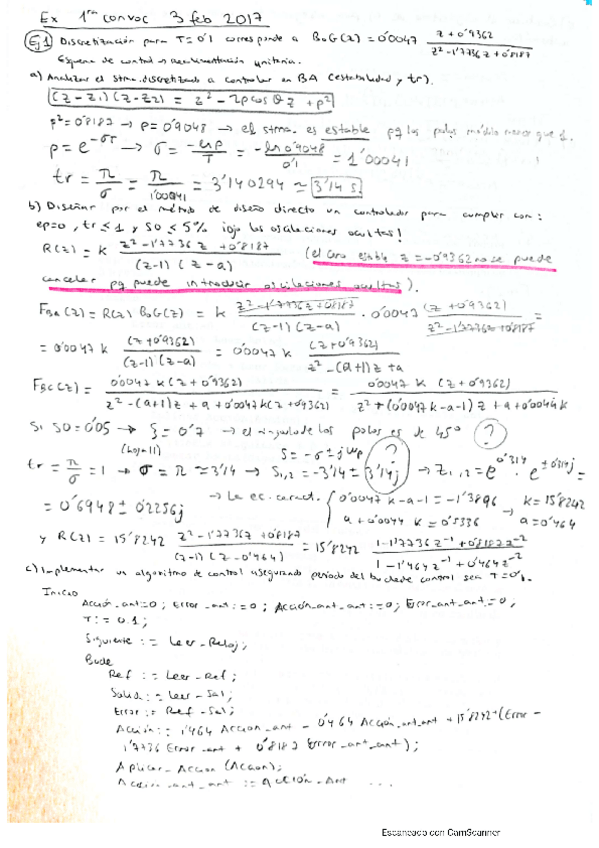 Ex 1ra convoc 3 feb 2017
Ej 1 Discretización para T=0'1 corresponde a BoG(z) = 0'0047 (z+0'9362)/(z²-1'7736z+0'8187)
Esquema de control → Realimentación unitaria.
a) Analizar el stma. discretizado a controlar en BA (estabilidad y tr).
(z-z1)(z-z2) = z² - 2p cosθ z + p²
p²=0'8187 → p=0'9048 → el stma. es estable pq los polos módulo menor que 1.
p = e^-σT → σ = -ln p/T = -ln 0'9048/0'1 = 1'00041
tr = π/σ = π/1'00041 = 3'140294 ≈ 3'14 s
b) Diseñar por el método de diseño directo un controlador para cumplir con:
ep=0, tr ≤ 1 y SO ≤ 5% ¡ojo las oscilaciones ocultas!
R(z) = k (z²-1'7736z+0'8187)/((z-1)(z-a)) (el cero estable z=-0'9362 no se puede
cancelar pq puede introducir oscilaciones ocultas).
FBA(z) = R(z) BoG(z) = k (z²-1'7736z+0'8187)/((z-1)(z-a)) · 0'0047 (z+0'9362)/(z²-1'7736z+0'8187) =
= 0'0047 k (z+0'9362)/((z-1)(z-a)) = 0'0047 k (z+0'9362)/(z²-(a+1)z+a)
FBC(z) = 0'0047 k (z+0'9362)/(z²-(a+1)z+a+0'0047k(z+0'9362)) = 0'0047 k (z+0'9362)/(z²+(0'0047k-a-1)z+a+0'0044k)
Si SO=0'05 → ξ=0'7 → el ángulo de los polos es de 45° ?
(hoja 11) s=-σ±jωp ?
tr = π/σ = 1 → σ = π ≈ 3'14 → S1,2 = -3'14 ± 3'14j → z1,2 = e^0'314 · e^±0'314j =
= 0'6948 ± 0'2256j → La ec. caract. { 0'0047k-a-1=-1'3896 → k=15'8242
a+0'0044k=0'5336 a=0'464
y R(z) = 15'8242 (z²-1'7736z+0'8187)/((z-1)(z-0'464)) = 15'8242 (1-1'7736z^-1+0'8187z^-2)/(1-1'464z^-1+0'464z^-2)
c) Implementar un algoritmo de control asegurando periodo del bucle de control sea T=0'1.
Inicio
Acción_ant:=0; Error_ant:=0; Acción_ant_ant:=0; Error_ant_ant:=0;
T:=0.1;
Siguiente := Leer_Reloj;
Bucle
Ref := Leer_Ref;
Salida := Leer_Sal;
Error := Ref - Sal;
Acción := 1'464 Acción_ant - 0'464 Acción_ant_ant + 15'8242*(Error -
1'7736 Error_ant + 0'8187 Error_ant_ant);
Aplicar_Acción (Acción);
Acción_ant_ant := Acción_Ant ...
Escaneado con CamScanner